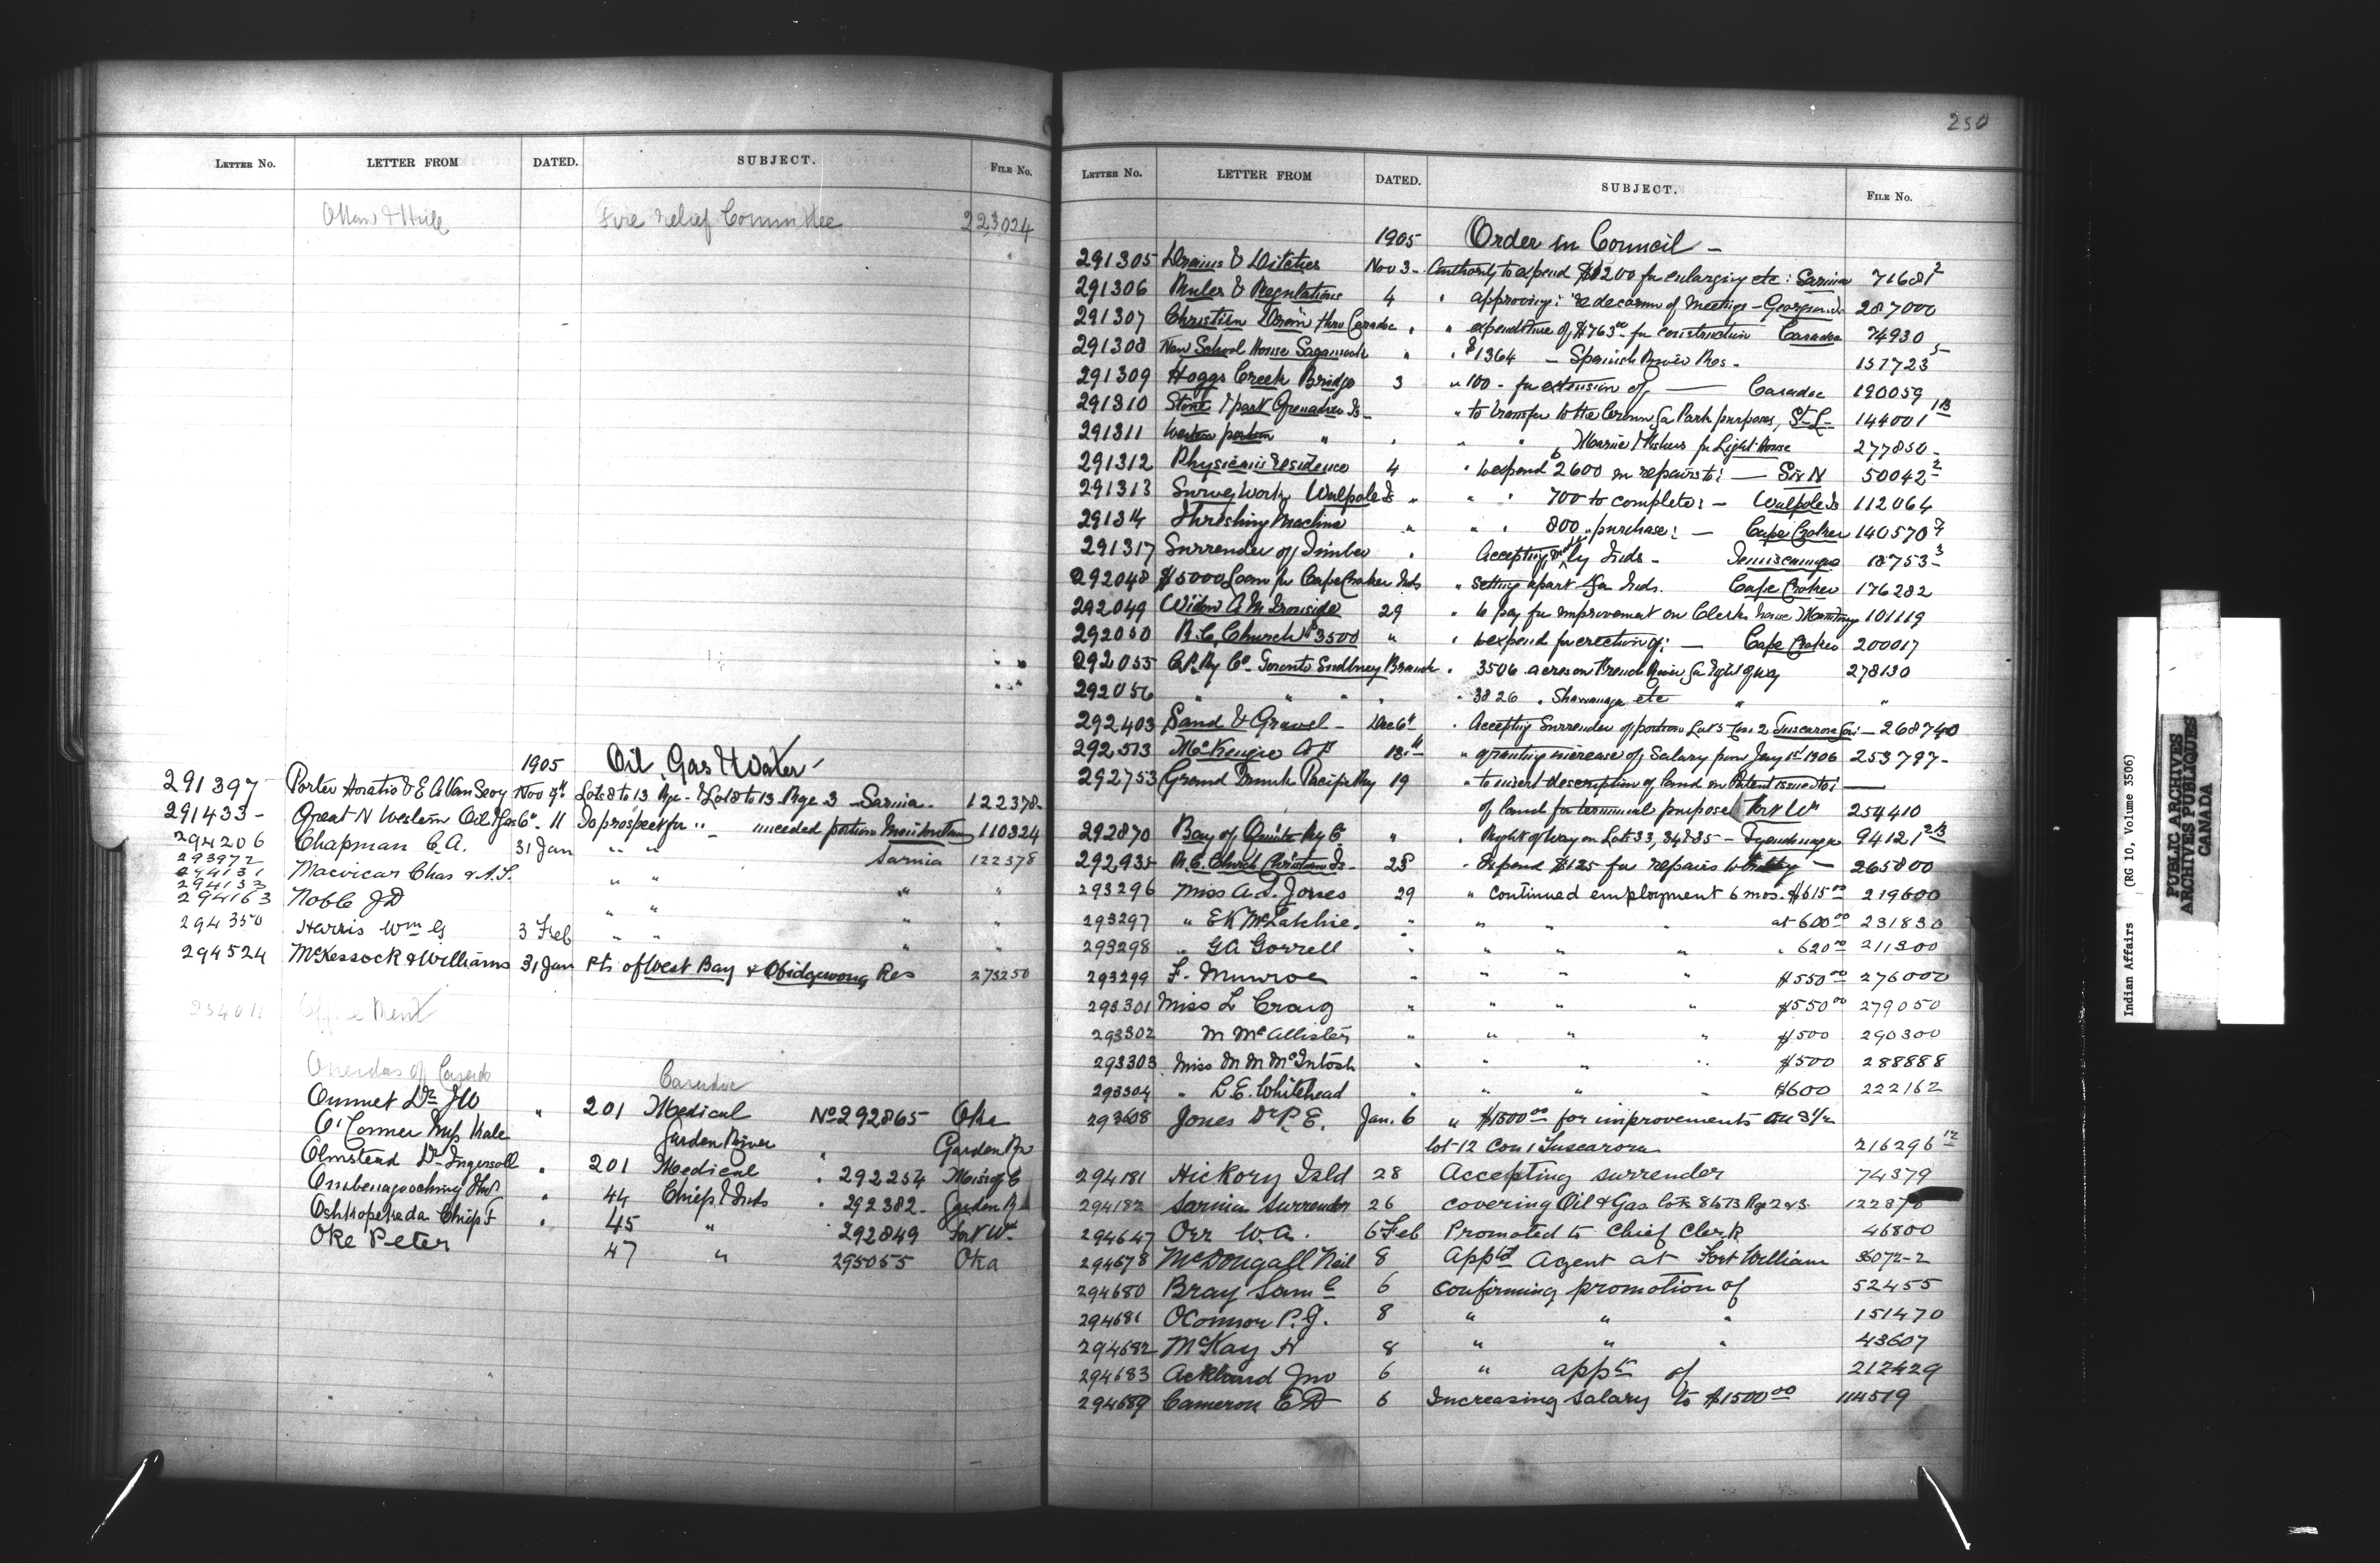 LETTER NO. LETTER FROM DATED. SUBJECT. FILE NO.
Ottawa & Hull Fire relief Committee 223024
1905 Oil, Gas & Water
291397 Porter Horatio & E A Van Sevy Nov 9th Lots 8 to 13 Rge - & Lots 8 to 13 Rge 3 Sarnia 122378
291433 Great N Western Oil & Gas Co. 11 To prospect for " unceded portion Manitoulin 110324
294206 Chapman C.A. 31 Jan " " Sarnia 122378
293972
294131 Macvicar Chas & A.L. " "
294133 " "
294163 Noble JD " " " "
294350 Harris Wm G 3 Feb " " " "
294524 McKessock & Williams 31 Jan Pts of West Bay & Obidgewong Res 273250
Office Rent
Oneidas of Caradoc
Caradoc
Ouimet Dr JW " 201 Medical No 292865 Oka
O'Connor Miss Kate Garden River " Garden Rr
Olmstead Dr Ingersoll " 201 Medical " 292254 Miss of C
" 44 Chief & Inds " 292382 Garden R
Oshkopekeda Chief F " 45 " " 292849 Fort Wm
Oke Peter 47 " 295055 Oka
250
LETTER NO. LETTER FROM DATED. SUBJECT. FILE NO.
1905 Order in Council -
291305 Drains & Ditches Nov 3 - Authority to expend $1200 for enlarging etc: Sarnia 71681 2
291306 Rules & Regulations 4 " approving: re decorum of Meetings - Georgina Is 287000
291307 Christian Drain thro Caradoc " " expenditure of $763.00 for construction Caradoc 74930
291308 New School House Sagamook " " $1364 - Spanish River Res - 151723 5
291309 Hoggs Creek Bridge 3 " 100 - for extension of - Caradoc 190059
291310 Stone & part Grenadier Is - " to transfer to the Crown for Park purposes, St. L - 144001 1B
291311 Western portion " " " " Marine & Fisheries for Light House 277850 -
291312 Physicians residence 4 " to expend 2600 on repairs to: - Six N 50042 2
291313 Survey Work, Walpole Is " " " 700 to complete: - Walpole Is 112064
291314 Threshing Machine " " " 800 " purchase: - Cape Croker 140570
291317 Surrender of Timber " Accepting by Inds - Temiscamingue 18753 3
292048 $5000 Loan for Cape Croker Inds " setting apart for Inds. Cape Croker 176282
292049 Widow A M Ironside 29 " to pay for improvement on Clerks house 101119
292050 R.C. Church $3500 " " to expend for erection of: - Cape Croker 200017
292055 C.P. Ry Co. Toronto Sudbury Branch " 35.06 acres on French River for right of way 278130
292056 " " " " " 38.26 " Shawanaga etc " "
292403 Sand & Gravel - Dec 6th " Accepting Surrender of portion Lot 5 Con. 2 Tuscarora - 268740
292513 McKenzie A F 13th " granting increase of Salary from Jany 1st 1906 253797 -
292753 Grand Trunk Pacific Ry 19 " to insert description of land in Patent issued to: -
of land for terminal purposes Fort Wm 254410
292870 Bay of Quinte Ry Co " " Right of Way on Lots 33, 34 & 35 - Tyendinaga 94121 2/3
292935 R.C. Church Christian Is - 28 " Expend $125 for repairs to - 265800
293296 Miss A. S. Jones 29 " continued employment 6 mos. $615.00 219600
293297 " E K McLatchie " " " at 600.00 231830
293298 " GA Gorrell " " " " " 620.00 211300
293299 F. Munroe " " " " $550.00 276000
293301 Miss L Craig " " " " $550.00 279050
293302 M McAllister " " " " $500 290300
293303 Miss M M McIntosh " " " " $500 288888
293304 " L.E. Whitehead " " " " $600 222162
293608 Jones Dr P. E. Jan. 6 " $1500.00 for improvements on S 1/2
lot 12 Con 1 Tuscarora 216296 12
294181 Hickory Isld 28 Accepting surrender 74379
294182 Sarnia Surrender 26 covering Oil & Gas lots 8 to 13 Rge 2 & 3 122378
294647 Orr W.A. 6 Feb Promoted to Chief Clerk 46800
294678 McDougall Neil 8 Appt'd Agent at Fort William 36072-2
294680 Bray Saml 6 confirming promotion of 52455
294681 OConnor P.J. 8 " " " 151470
294682 McKay H 8 " " " 43607
294683 Ackland Jno 6 " appt of 212429
294689 Cameron E D 6 Increasing salary to $1500.00 114519
Indian Affairs (RG 10, Volume 3506)
PUBLIC ARCHIVES
ARCHIVES PUBLIQUES
CANADA